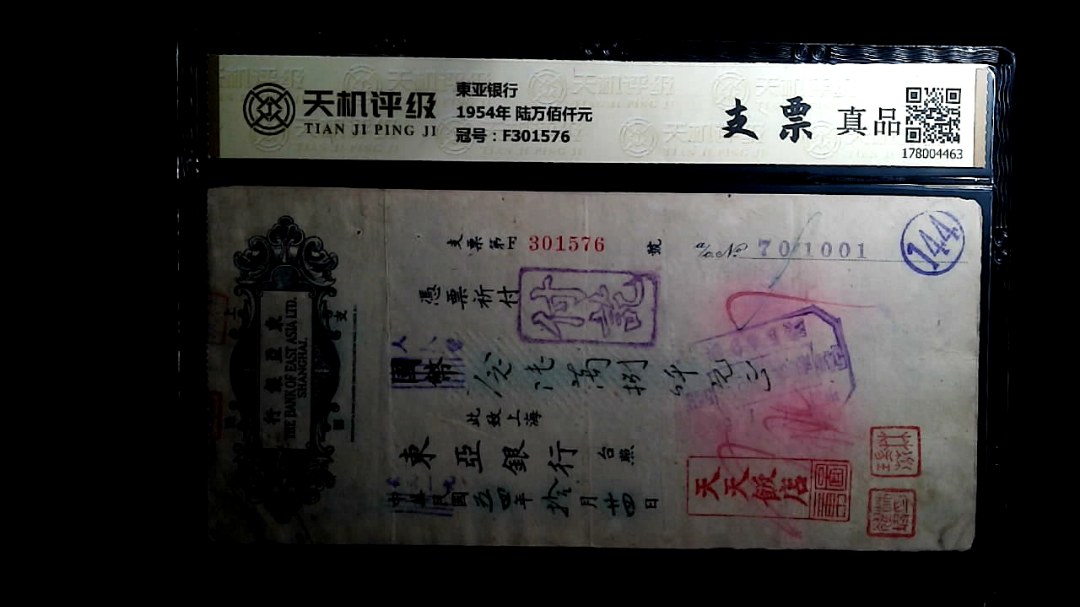 天机评级
TIAN JI PING JI
東亚银行
1954年 陆万佰仟元
冠号：F301576
支票 真品
178004463
支票第 301576 號
a/c No 70/1001
144
憑票祈付
付訖
人
國幣
萬捌仟元正
此致上海
東亞銀行 台照
民國五四年拾月廿四日
天天飯店
東亞銀行
THE BANK OF EAST ASIA LTD.
SHANGHAI.